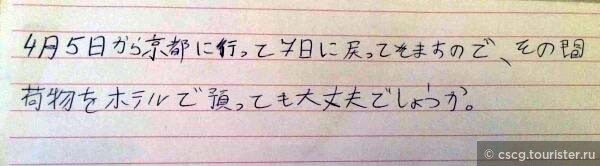 4月5日から京都に行って7日に戻ってそますので、その間
荷物をホテルで預っても大丈夫でしょうか。
© cscg.tourister.ru